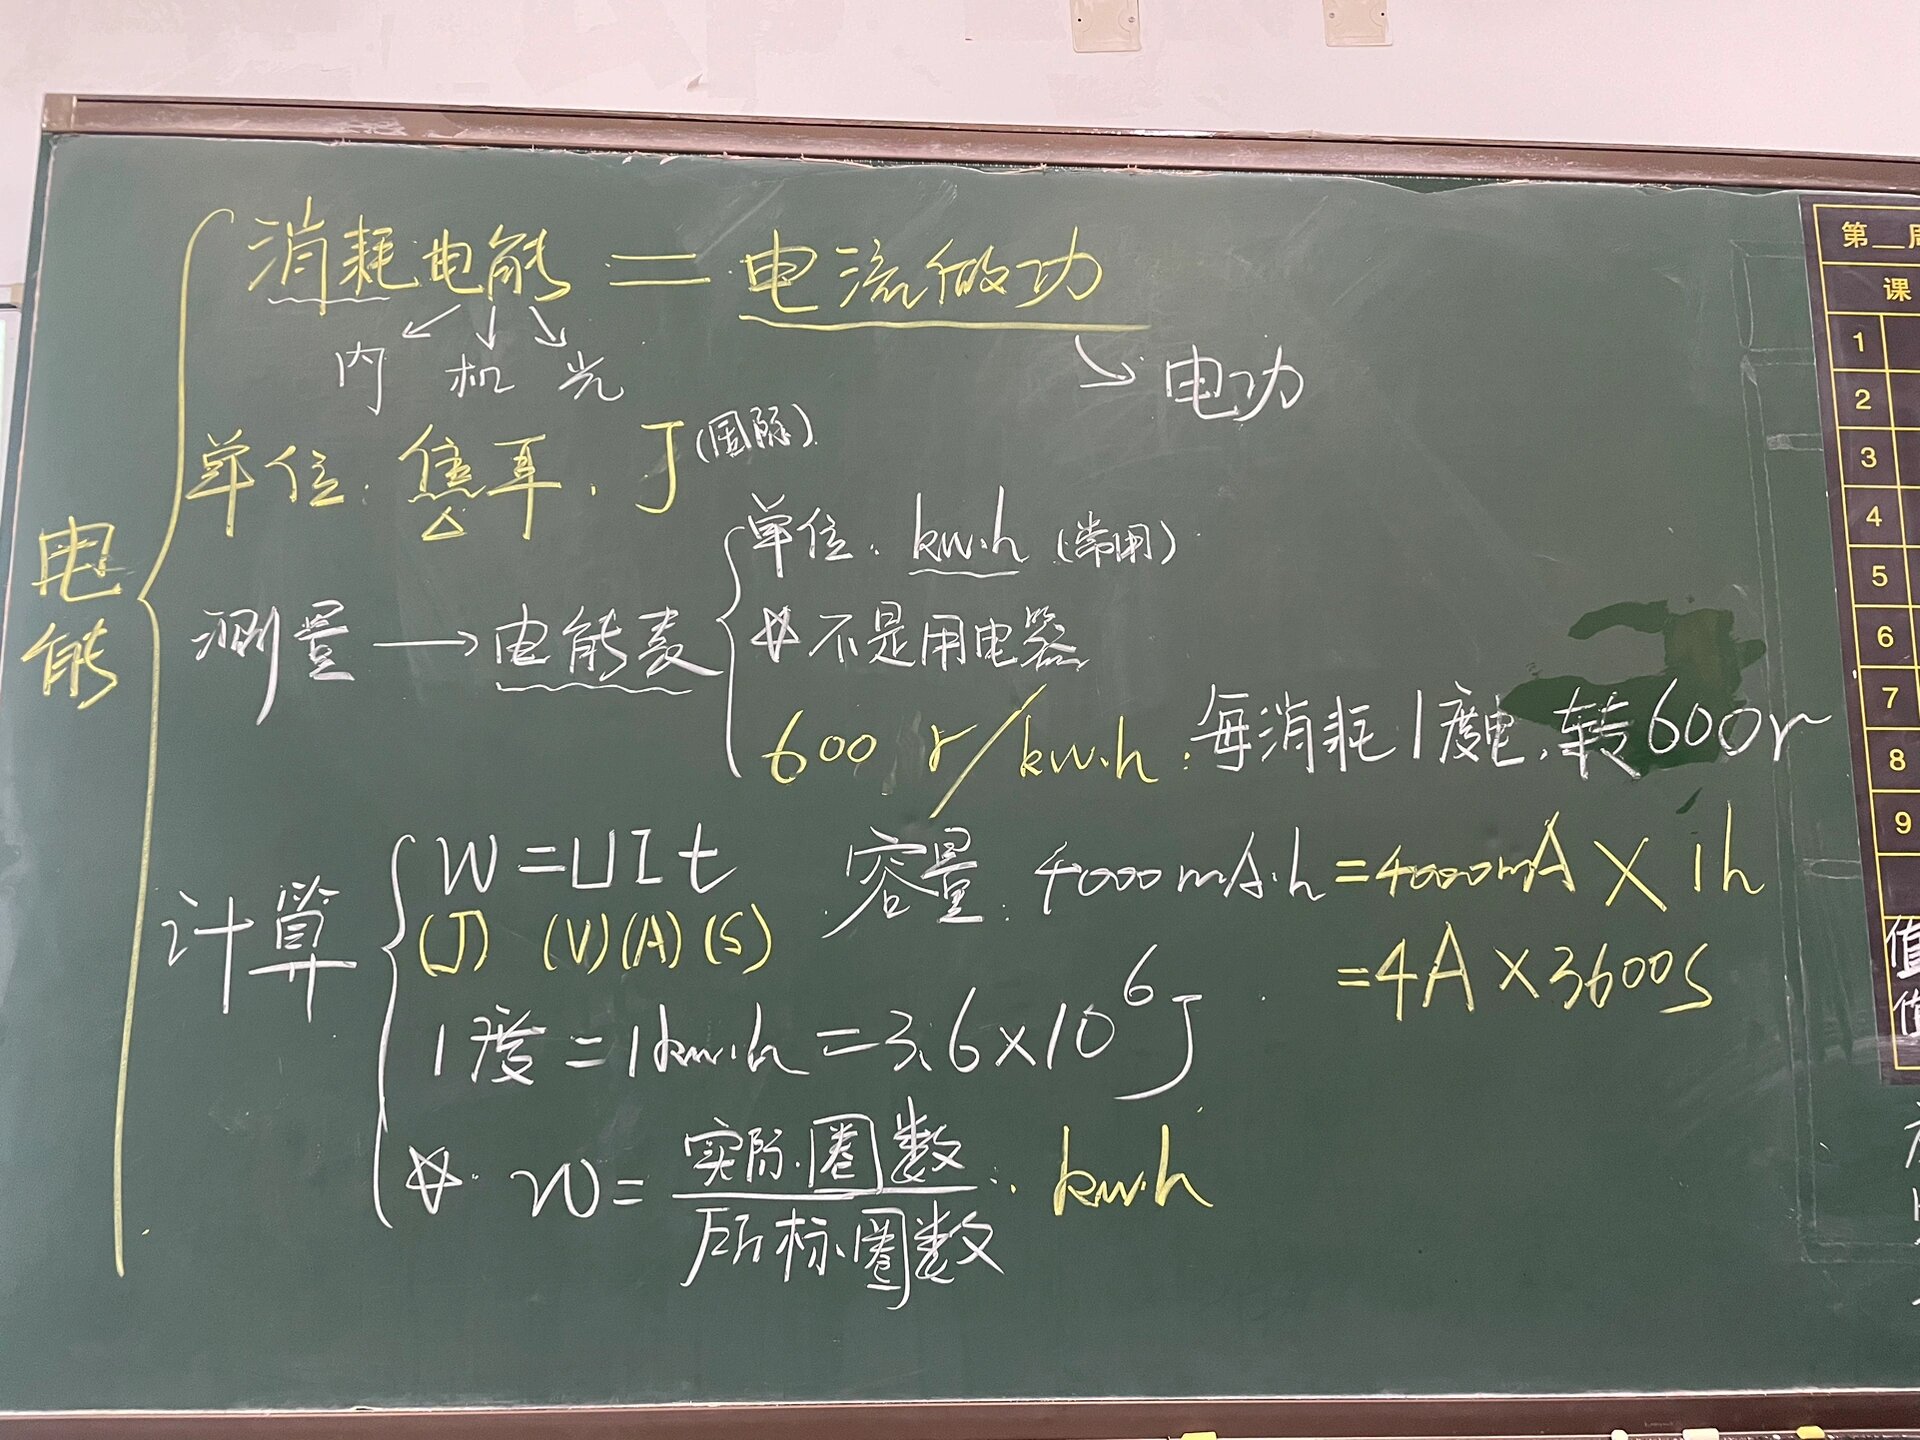 电能
消耗电能 = 电流做功
内 机 光
电功
单位: 焦耳. J (国际)
测量 → 电能表
单位: kw·h (常用)
☆不是用电器
600 r/kw·h: 每消耗1度电, 转600r
计算
W=UIt
(J) (V)(A)(S)
容量: 4000mA·h=4000mA×1h
=4A×3600s
1度=1kw·h=3.6×10⁶J
☆ W=实际圈数/所标圈数 kw·h
第__周
课
1
2
3
4
5
6
7
8
9
值
值